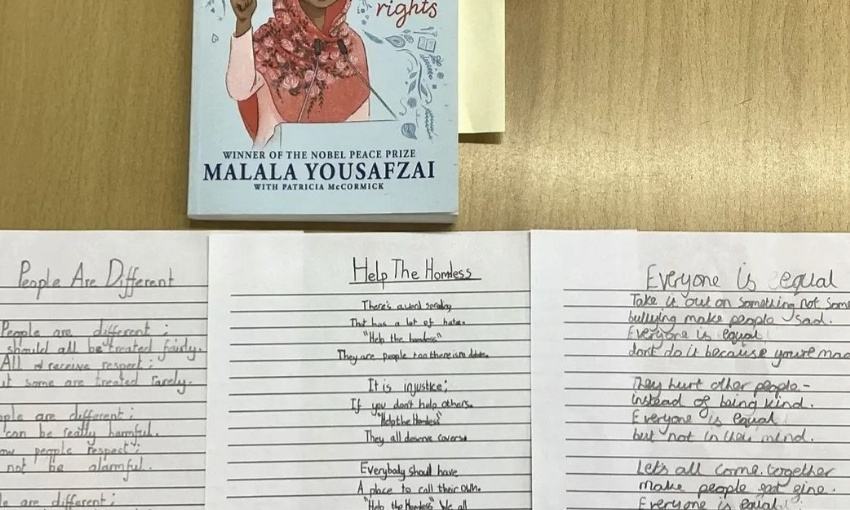 rights
WINNER OF THE NOBEL PEACE PRIZE
MALALA YOUSAFZAI
WITH PATRICIA McCORMICK
People Are Different
People are different;
should all be treated fairly.
All receive respect;
some are treated rarely.
are different;
can be really harmful.
people respect;
not be alarmful.
are different;
Help The Homless
There's a
That has a lot of hate.
"Help the homless"
They are people too there is no
It is injustice;
If you don't help others.
"Help the Homless"
They all deserve covers.
Everybody should have
A place to call their own.
"Help the Homless" We all
Everyone is equal
Take it out on something not
bullying make people sad.
Everyone is equal
dont do it because you're
They hurt other people-
instead of being kind.
Everyone is equal
but not in their mind.
Let's all come together
make people
Everyone is equal